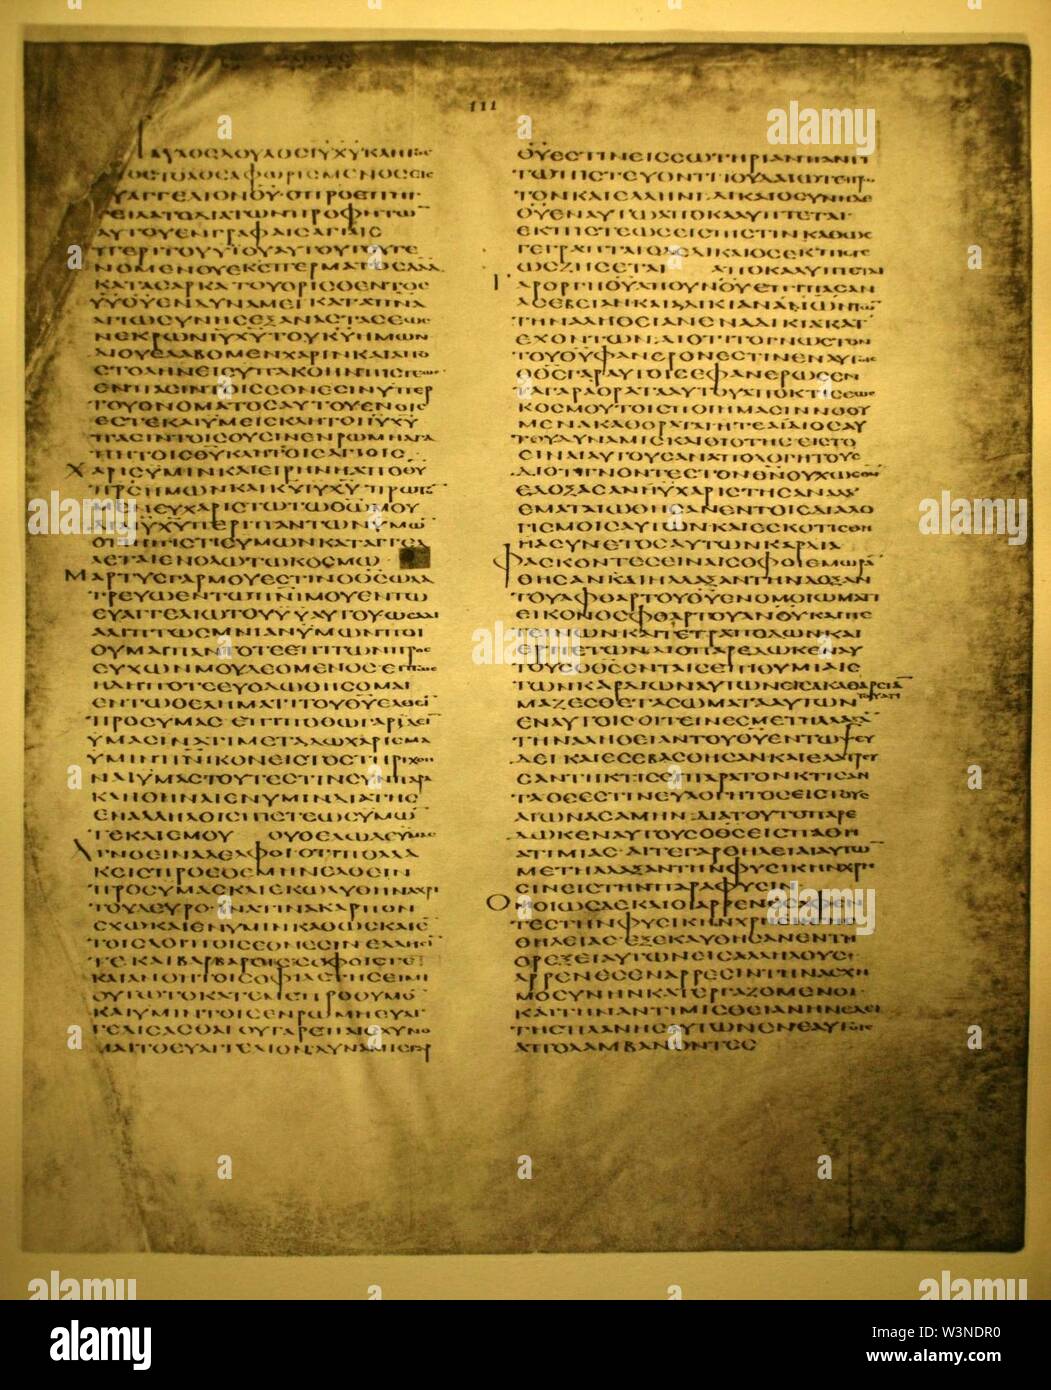 111
ΠΑΥΛΟCΔΟΥΛΟCΙΥΧΥΚΛΗΤΟCΑ
ΠΟCΤΟΛΟCΑΦΩΡΙCΜΕΝΟCΕΙC
ΕΥΑΓΓΕΛΙΟΝΘΥ·ΟΠΡΟΕΠΗΓ
ΓΕΙΛΑΤΟΔΙΑΤΩΝΠΡΟΦΗΤΩ
ΑΥΤΟΥΕΝΓΡΑΦΑΙCΑΓΙΑΙC
ΠΕΡΙΤΟΥΥΙΟΥΑΥΤΟΥΤΟΥΓΕ
ΝΟΜΕΝΟΥΕΚCΠΕΡΜΑΤΟCΔΑΔ
ΚΑΤΑCΑΡΚΑΤΟΥΟΡΙCΘΕΝΤΟC
ΥΥΘΥΕΝΔΥΝΑΜΕΙΚΑΤΑΠΝΑ
ΑΓΙΩCΥΝΗCΕΞΑΝΑCΤΑCΕΩC
ΝΕΚΡΩΝΙΥΧΥΤΟΥΚΥΗΜΩΝ
ΔΙΟΥΕΛΑΒΟΜΕΝΧΑΡΙΝΚΑΙΑΠΟ
CΤΟΛΗΝΕΙCΥΠΑΚΟΗΝΠΙCΤΕΩC
ΕΝΠΑCΙΝΤΟΙCΕΘΝΕCΙΝΥΠΕΡ
ΤΟΥΟΝΟΜΑΤΟCΑΥΤΟΥΕΝΟΙC
ΕCΤΕΚΑΙΥΜΕΙCΚΛΗΤΟΙΙΥΧΥ
ΠΑCΙΝΤΟΙCΟΥCΙΝΕΝΡΩΜΗΑΓΑ
ΠΗΤΟΙCΘΥΚΛΗΤΟΙCΑΓΙΟΙC
ΧΑΡΙCΥΜΙΝΚΑΙΕΙΡΗΝΗΑΠΟΘΥ
ΠΡCΗΜΩΝΚΑΙΚΥΙΥΧΥ·ΠΡΩΤΟ
ΜΕΝΕΥΧΑΡΙCΤΩΤΩΘΩΜΟΥ
ΔΙΑΙΥΧΥΠΕΡΙΠΑΝΤΩΝΥΜΩ
ΟΤΙΗΠΙCΤΙCΥΜΩΝΚΑΤΑΓΓΕΛ
ΛΕΤΑΙΕΝΟΛΩΤΩΚΟCΜΩ
ΜΑΡΤΥCΓΑΡΜΟΥΕCΤΙΝΟΘCΩΛΑ
ΤΡΕΥΩΕΝΤΩΠΝΙΜΟΥΕΝΤΩ
ΕΥΑΓΓΕΛΙΩΤΟΥΥΥΑΥΤΟΥΩCΑΔΙ
ΑΛΙΠΤΩCΜΝΙΑΝΥΜΩΝΠΟΙ
ΟΥΜΑΙΠΑΝΤΟΤΕΕΠΙΤΩΝΠΡΟC
ΕΥΧΩΝΜΟΥΔΕΟΜΕΝΟCΕΙΠΩC
ΗΔΗΠΟΤΕΕΥΟΔΩΘΗCΟΜΑΙ
ΕΝΤΩΘΕΛΗΜΑΤΙΤΟΥΘΥΕΛΘΕΙ
ΠΡΟCΥΜΑCΕΠΙΠΟΘΩΓΑΡΙΔΕΙ
ΥΜΑCΙΝΑΤΙΜΕΤΑΔΩΧΑΡΙCΜΑ
ΥΜΙΝΠΝΙΚΟΝΕΙCΤΟCΤΗΡΙΧΘΗ
ΝΑΙΥΜΑCΤΟΥΤΕCΤΙΝCΥΝΠΑΡΑ
ΚΛΗΘΗΝΑΙΕΝΥΜΙΝΔΙΑΤΗC
ΕΝΑΛΛΗΛΟΙCΠΙCΤΕΩCΥΜΩ
ΤΕΚΑΙΕΜΟΥ ΟΥΘΕΛΩΔΕΥΜΑC
ΑΓΝΟΕΙΝΑΔΕΛΦΟΙΟΤΙΠΟΛΛΑ
ΚΕΙCΠΡΟΕΘΕΜΗΝΕΛΘΕΙΝ
ΠΡΟCΥΜΑCΚΑΙΕΚΩΛΥΘΗΝΑΧΡΙ
ΤΟΥΔΕΥΡΟ·ΙΝΑΤΙΝΑΚΑΡΠΟΝ
CΧΩΚΑΙΕΝΥΜΙΝΚΑΘΩCΚΑΙΕ
ΤΟΙCΛΟΙΠΟΙCΕΘΝΕCΙΝΕΛΛΗCΙ
ΤΕΚΑΙΒΑΡΒΑΡΟΙCCΟΦΟΙCΤΕ
ΚΑΙΑΝΟΗΤΟΙCΟΦΙΛΕΤΗCΕΙΜΙ
ΟΥΤΩΤΟΚΑΤΕΜΕΠΡΟΘΥΜΟ
ΚΑΙΥΜΙΝΤΟΙCΕΝΡΩΜΗΕΥΑΓ
ΓΕΛΙCΑCΘΑΙΟΥΓΑΡΕΠΑΙCΧΥΝΟ
ΜΑΙΤΟΕΥΑΓΓΕΛΙΟΝ·ΔΥΝΑΜΙCΓΑΡ
ΘΥΕCΤΙΝΕΙCCΩΤΗΡΙΑΝΠΑΝΤΙ
ΤΩΠΙCΤΕΥΟΝΤΙΙΟΥΔΑΙΩΤΕΠΡΩ
ΤΟΝΚΑΙΕΛΛΗΝΙ·ΔΙΚΑΙΟCΥΝΗΔΕ
ΘΥΕΝΑΥΤΩΑΠΟΚΑΛΥΠΤΕΤΑΙ·
ΕΚΠΙCΤΕΩCΕΙCΠΙCΤΙΝΚΑΘΩC
ΓΕΓΡΑΠΤΑΙΟΔΕΔΙΚΑΙΟCΕΚΠΙCΤΕ
ΩCΖΗCΕΤΑΙ ΑΠΟΚΑΛΥΠΤΕΤΑΙ
ΓΑΡΟΡΓΗΘΥΑΠΟΥΝΟΥΕΠΙΠΑCΑΝ
ΑCΕΒΕΙΑΝΚΑΙΑΔΙΚΙΑΝΑΝΩΝΤΩ
ΤΗΝΑΛΗΘΕΙΑΝΕΝΑΔΙΚΙΑΚΑΤ
ΕΧΟΝΤΩΝ·ΔΙΟΤΙΤΟΓΝΩCΤΟΝ
ΤΟΥΘΥΦΑΝΕΡΟΝΕCΤΙΝΕΝΑΥΤΟΙC
ΟΘCΓΑΡΑΥΤΟΙCΕΦΑΝΕΡΩCΕΝ
ΤΑΓΑΡΑΟΡΑΤΑΑΥΤΟΥΑΠΟΚΤΙCΕΩC
ΚΟCΜΟΥΤΟΙCΠΟΙΗΜΑCΙΝΝΟΟΥ
ΜΕΝΑΚΑΘΟΡΑΤΑΙΗΤΕΑΙΔΙΟCΑΥ
ΤΟΥΔΥΝΑΜΙCΚΑΙΘΙΟΤΗCΕΙCΤΟ
ΕΙΝΑΙΑΥΤΟΥCΑΝΑΠΟΛΟΓΗΤΟΥC
ΔΙΟΤΙΓΝΟΝΤΕCΤΟΝΘΝΟΥΧΩCΘΝ
ΕΔΟΞΑCΑΝΗΥΧΑΡΙCΤΗCΑΝΑΛΛ
ΕΜΑΤΑΙΩΘΗCΑΝΕΝΤΟΙCΔΙΑΛΟ
ΓΙCΜΟΙCΑΥΤΩΝΚΑΙΕCΚΟΤΙCΘΗ
ΗΑCΥΝΕΤΟCΑΥΤΩΝΚΑΡΔΙΑ
ΦΑCΚΟΝΤΕCΕΙΝΑΙCΟΦΟΙΕΜΩΡΑ
ΘΗCΑΝΚΑΙΗΛΛΑΞΑΝΤΗΝΔΟΞΑΝ
ΤΟΥΑΦΘΑΡΤΟΥΘΥΕΝΟΜΟΙΩΜΑΤΙ
ΕΙΚΟΝΟCΦΘΑΡΤΟΥΑΝΟΥΚΑΙΠΕ
ΤΕΙΝΩΝΚΑΙΤΕΤΡΑΠΟΔΩΝΚΑΙ
ΕΡΠΕΤΩΝ·ΔΙΟΠΑΡΕΔΩΚΕΝΑΥ
ΤΟΥCΟΘCΕΝΤΑΙCΕΠΙΘΥΜΙΑΙC
ΤΩΝΚΑΡΔΙΩΝΑΥΤΩΝΕΙCΑΚΑΘΑΡCΙΑ
ΤΟΥΑΤΙ
ΜΑΖΕCΘΕΤΑCΩΜΑΤΑΑΥΤΩΝ
ΕΝΑΥΤΟΙCΟΙΤΕΙΝΕCΜΕΤΗΛΛΑΞΑ
ΤΗΝΑΛΗΘΕΙΑΝΤΟΥΘΥΕΝΤΩΨΕΥ
ΔΕΙΚΑΙΕCΕΒΑCΘΗCΑΝΚΑΙΕΛΑΤΡΕΥ
CΑΝΤΗΚΤΙCΕΙΠΑΡΑΤΟΝΚΤΙCΑΝ
ΤΑΟCΕCΤΙΝΕΥΛΟΓΗΤΟCΕΙCΤΟΥC
ΑΙΩΝΑCΑΜΗΝ·ΔΙΑΤΟΥΤΟΠΑΡΕ
ΔΩΚΕΝΑΥΤΟΥCΟΘCΕΙCΠΑΘΗ
ΑΤΙΜΙΑC·ΑΙΤΕΓΑΡΘΗΛΕΙΑΙΑΥΤΩ
ΜΕΤΗΛΛΑΞΑΝΤΗΝΦΥCΙΚΗΝΧΡΗ
CΙΝΕΙCΤΗΝΠΑΡΑΦΥCΙΝ
ΟΜΟΙΩCΔΕΚΑΙΟΙΑΡΡΕΝΕCΑΦΕΝ
ΤΕCΤΗΝΦΥCΙΚΗΝΧΡΗCΙΝΤΗC
ΘΗΛΕΙΑCΕΞΕΚΑΥΘΗCΑΝΕΝΤΗ
ΟΡΕΞΕΙΑΥΤΩΝΕΙCΑΛΛΗΛΟΥC·
ΑΡΡΕΝΕCΕΝΑΡΡΕCΙΝΤΗΝΑCΧΗ
ΜΟCΥΝΗΝΚΑΤΕΡΓΑΖΟΜΕΝΟΙ·
ΚΑΙΤΗΝΑΝΤΙΜΙCΘΙΑΝΗΝΕΔΕΙ
ΤΗCΠΛΑΝΗCΑΥΤΩΝΕΝΕΑΥΤΟΙC
ΑΠΟΛΑΜΒΑΝΟΝΤΕC
alamy
Image ID: W3NDR0
www.alamy.com